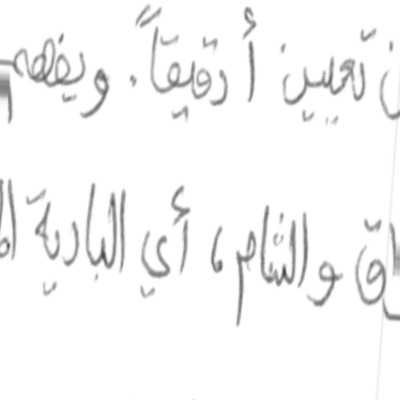 تعيين أ دقيقاً. ويفهم
والشام، أي البادية